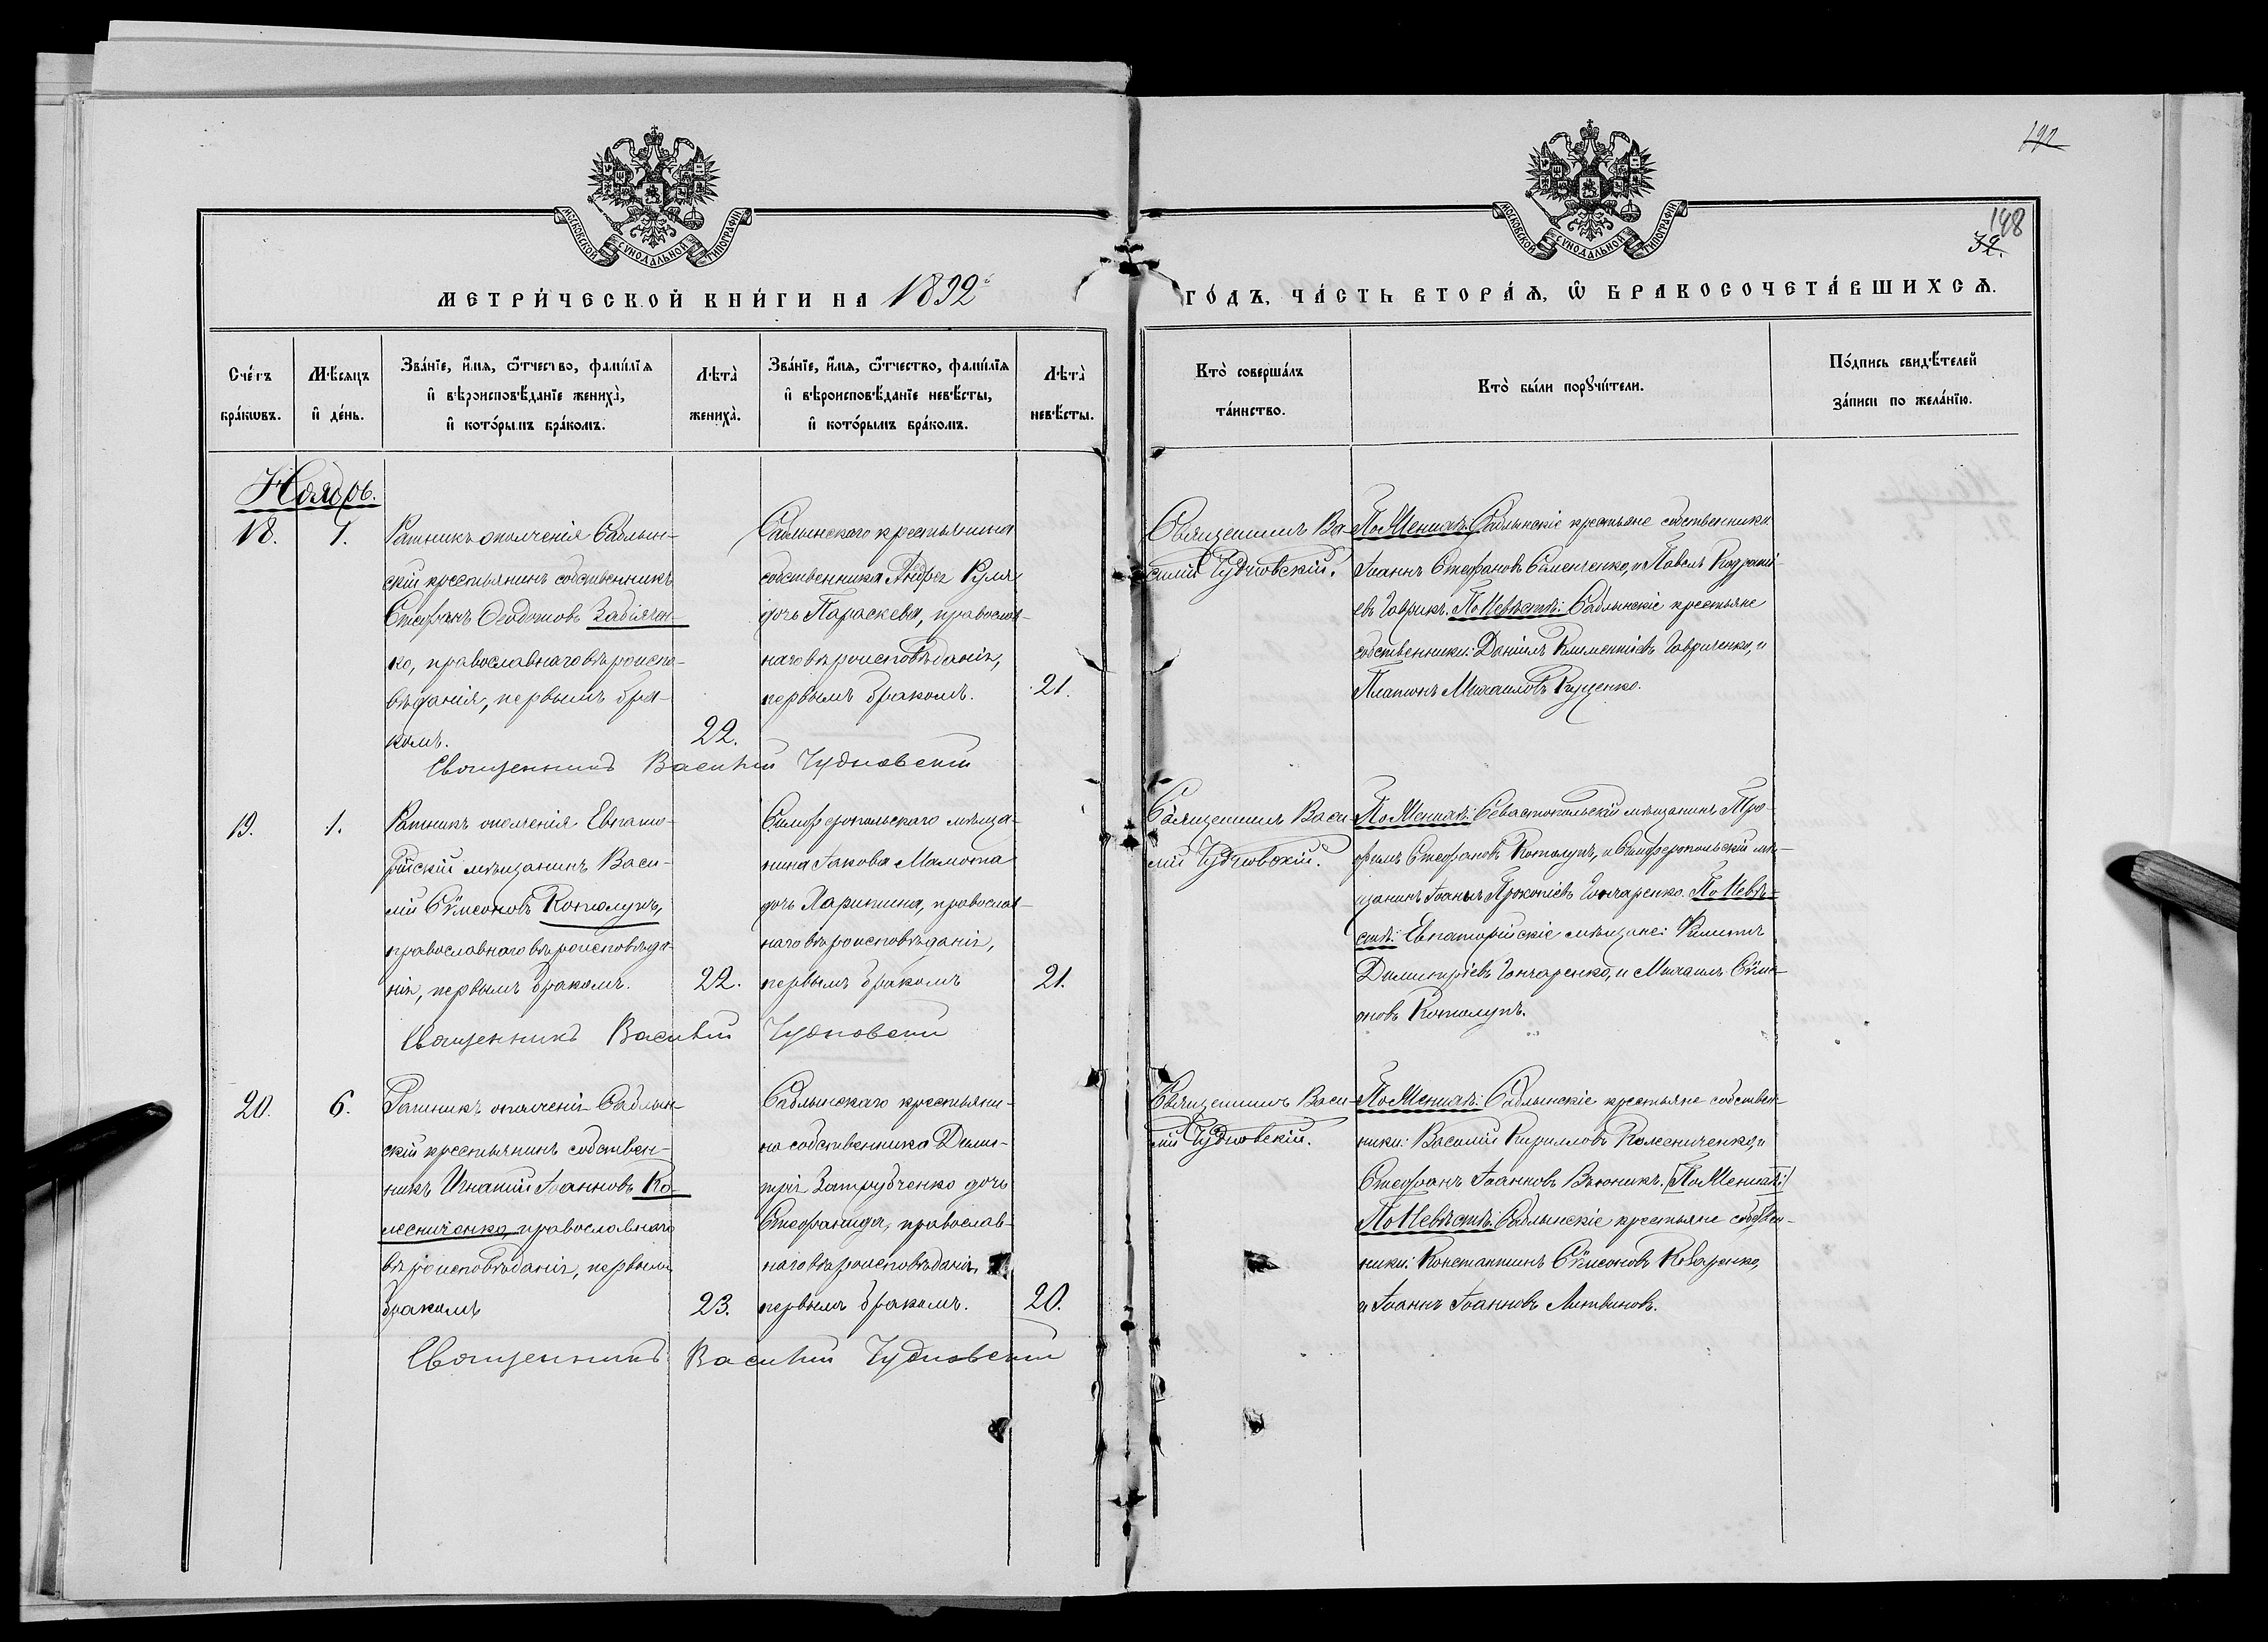 192
198
32.
МОСКОВСКОЙ СѴНОДАЛЬНОЙ ТИПОГРАФІИ
МОСКОВСКОЙ СѴНОДАЛЬНОЙ ТИПОГРАФІИ
МЕТРИ́ЧЕСКОЙ КНИ́ГИ НА 1892 ГО́ДЪ, ЧА́СТЬ ВТОРА́Ѧ, Ѡ҆ БРАКОСОЧЕТА́ВШИХСѦ.
Сче́тъ
бра́кѡвъ.
Мѣ́сяцъ
и҆ де́нь.
Зва́нїе, и҆́мѧ, ѻ҆́тчество, фами́лїѧ
и҆ вѣроисповѣ́данїе жениха̀,
и҆ кото́рымъ бра́комъ.
Лѣта̀
жениха̀.
Зва́нїе, и҆́мѧ, ѻ҆́тчество, фами́лїѧ
и҆ вѣроисповѣ́данїе невѣ́сты,
и҆ кото́рымъ бра́комъ.
Лѣта̀
невѣ́сты.
Кто̀ соверша́лъ
та́инство.
Кто̀ бы́ли порꙋчи́тели.
По́дпись свидѣ́телей
за́писи по жела́нїю.
Ноябрь.
18.
1.
Ратникъ ополченія Саблын-
скій крестьянинъ собственникъ
Стефанъ Ѳеодотовъ Забіячен-
ко, православнаго вѣроиспо-
вѣданія, первымъ бра-
комъ.
22.
Саблынскаго крестьянина
собственника Андрея Куля
дочь Параскева, православ-
наго вѣроисповѣданія,
первымъ бракомъ.
21.
Священникъ Ва-
силій Чудновскій.
По Женихѣ: Саблынскіе крестьяне собственники
Іоаннъ Стефановъ Семенченко, и Павелъ Кодратi-
евъ Гаврикъ. По Невѣстѣ: Саблынскіе крестьяне
собственники: Даніилъ Климентіевъ Гавриченко, и
Платонъ Михаиловъ Куценко.
Священникъ Василій Чудновскій
19.
1.
Ратникъ ополченія Евпато-
рійскій мѣщанинъ Васи-
лій Сѵмеоновъ Котолупъ,
православнаго вѣроисповѣда-
нія, первымъ бракомъ.
22.
Симферопольскаго мѣща-
нина Іакова Мамота
дочь Харитина, православ-
наго вѣроисповѣданія,
первымъ бракомъ
21.
Священникъ Васи-
лій Чудновскій.
По Женихѣ: Севастопольскій мѣщанинъ Тро-
фимъ Стефановъ Котолупъ, и Симферопольскій мѣ-
щанинъ Іоаннъ Прокопіевъ Гончаренко. По Невѣ-
стѣ: Евпаторійскіе мѣщане: Филиппъ
Димитріевъ Гончаренко, и Михаилъ Сѵме-
оновъ Котолупъ.
Священникъ Василій Чудновскій
20.
6.
Ратникъ ополченія Саблын-
скій крестьянинъ собствен-
никъ Игнатій Іоанновъ Ко-
лесниченко, православнаго
вѣроисповѣданія, первымъ
бракомъ
23.
Саблынскаго крестьяни-
на собственника Дими-
трія Затрубченко дочь
Стефанида, православ-
наго вѣроисповѣданія,
первымъ бракомъ.
20.
Священникъ Васи-
лій Чудновскій.
По Женихѣ: Саблынскіе крестьяне собствен-
ники: Василій Кирилловъ Колесниченко, и
Стефанъ Іоанновъ Вьюникъ. [По Женихѣ:]
По Невѣстѣ: Саблынскіе крестьяне собствен-
ники: Константинъ Сѵмеоновъ Коваренко,
и Іоаннъ Іоанновъ Литвиновъ.
Священникъ Василій Чудновскій